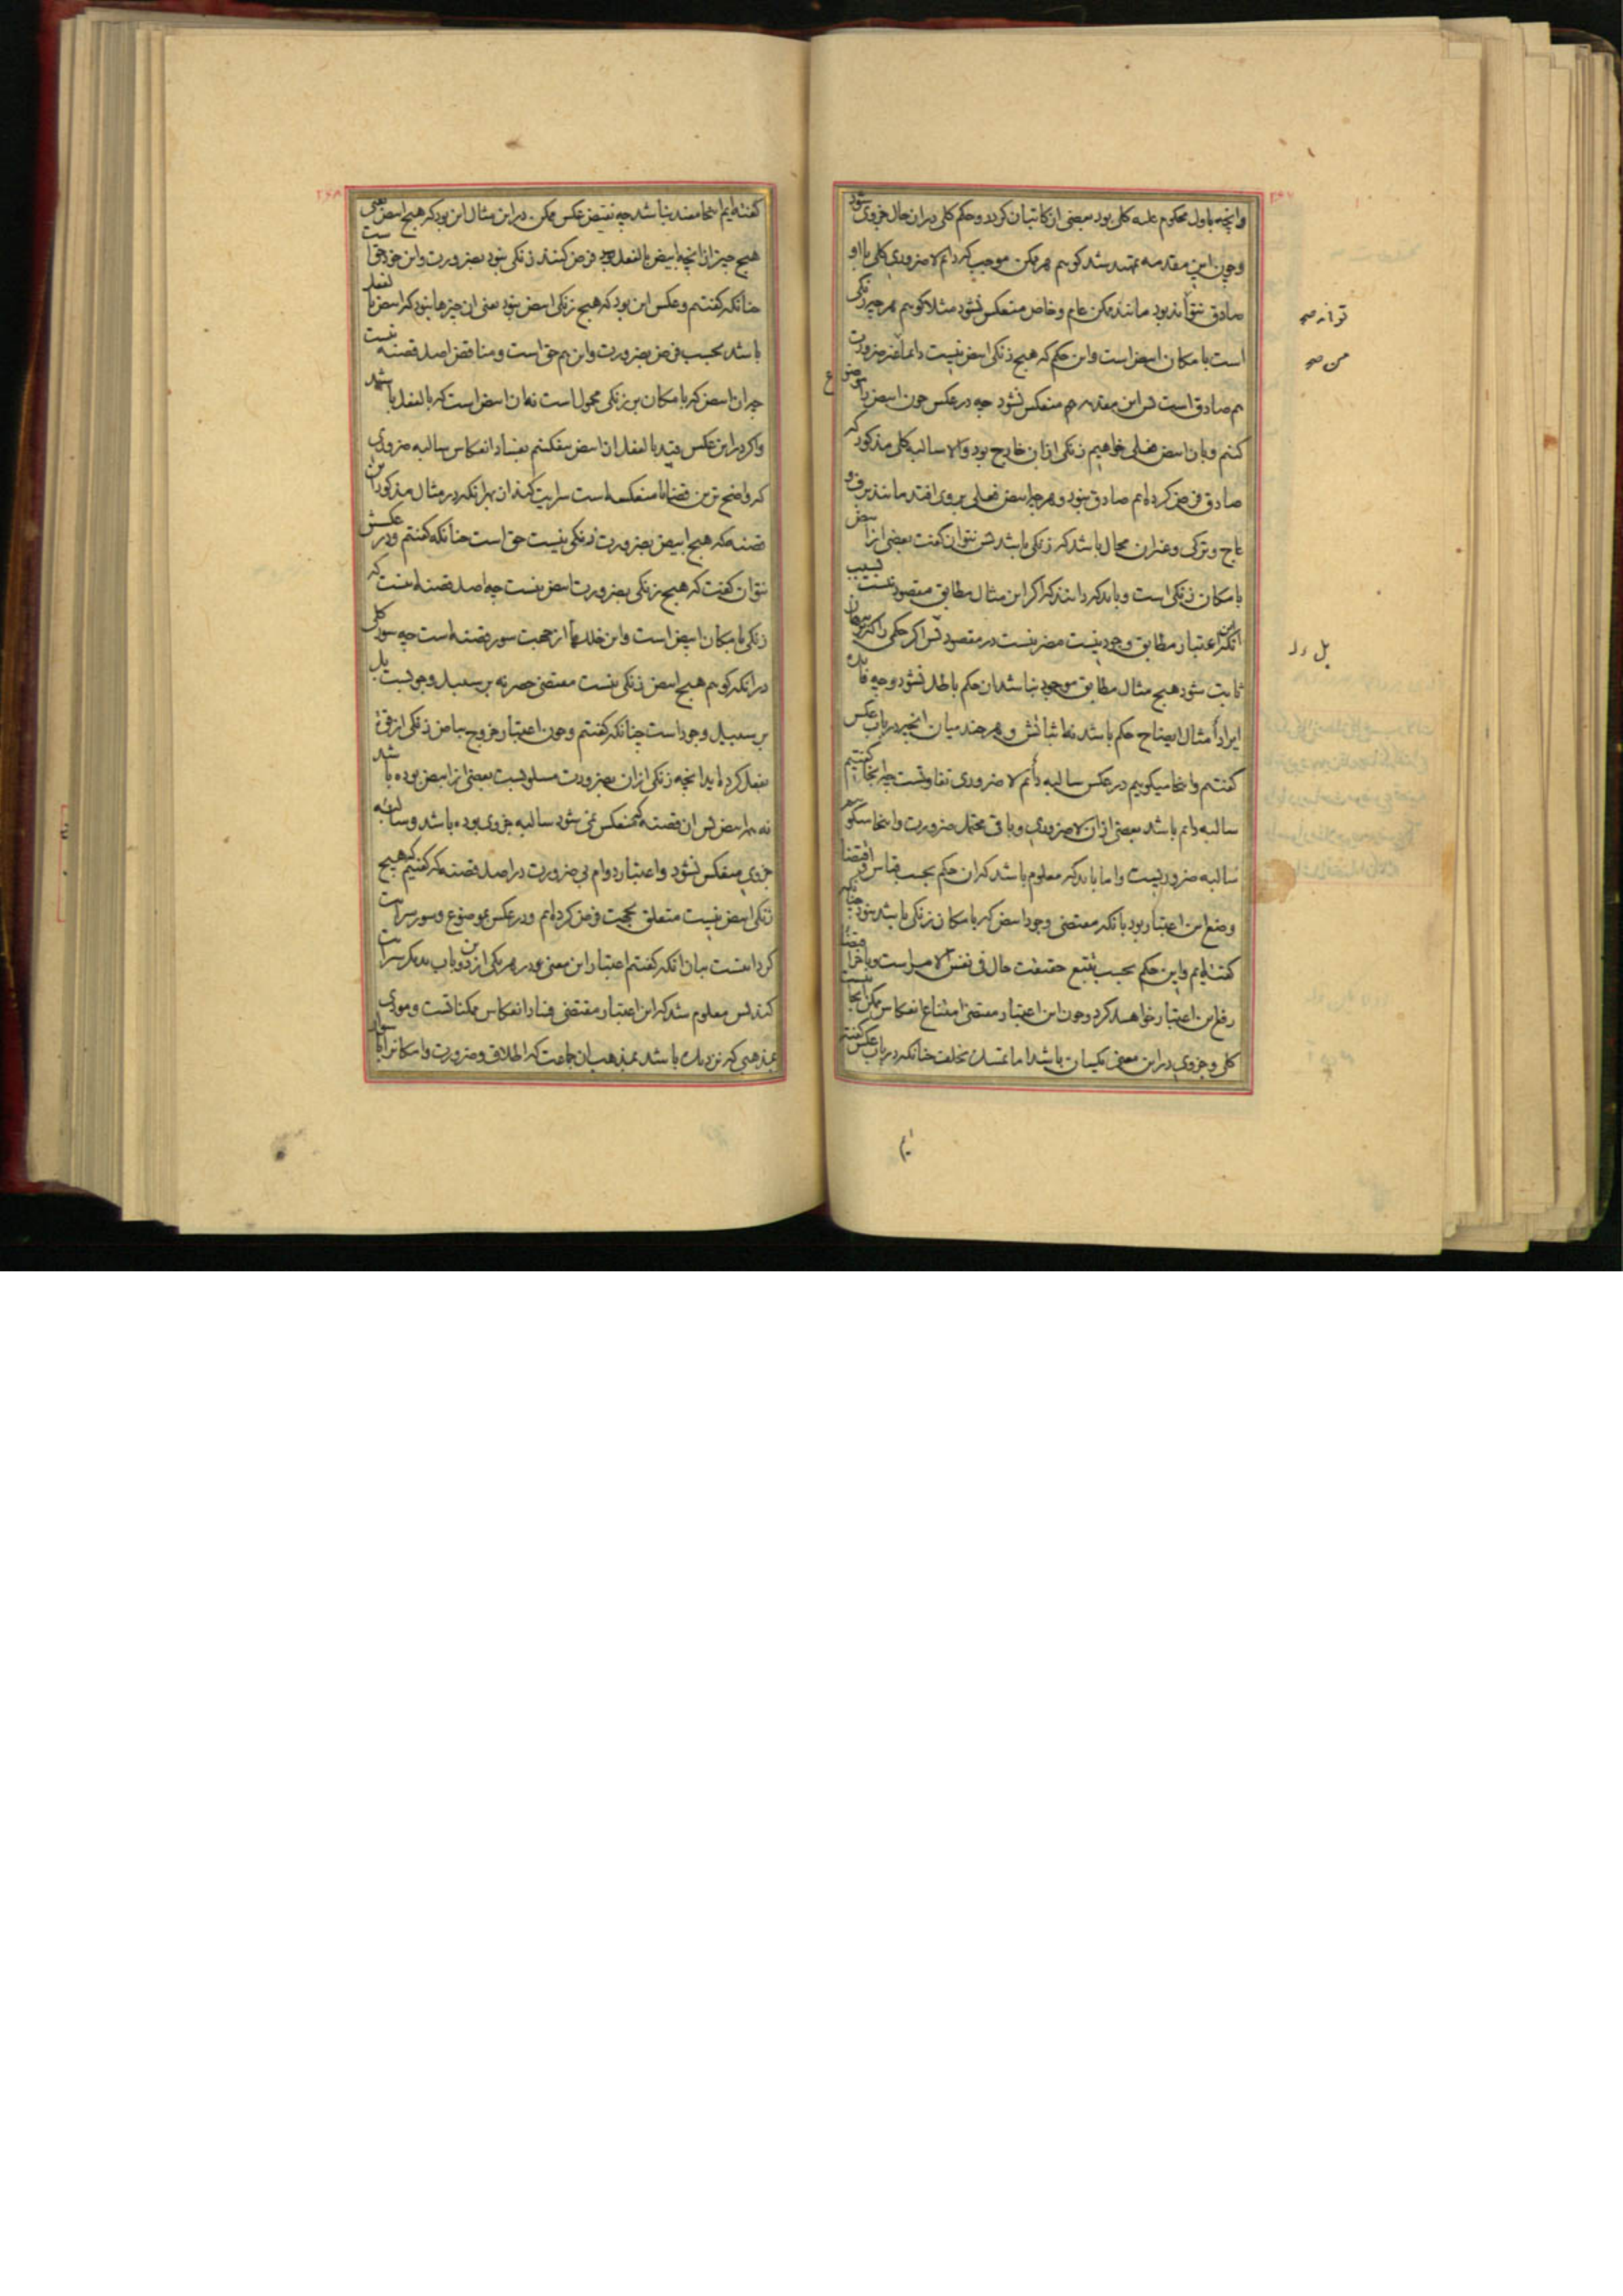 ۲۶۷
وانچه باول محکوم علیه کلی بود بعضی از کاتبان کردد و حکم کلی دران حال جزوی شود
و چون این مقدمه ممهد شد کوییم هر ممکن موجب که دایم لا ضروری کلی با او
صادق نتواند بود مانند ممکن عام و خاص منعکس نشود مثلا کوییم هر چه زنکی
است بامکان ابیض است و این حکم که هیچ زنکی ابیض نیست دایما بغیر ضرورت
هم صادق است پس این مقدمه هم منعکس نشود چه در عکس چون ابیض با موضوع
کنیم و بان ابیض فعلی خواهیم زنکی ازان خارج بود والا سالبه کلی مذکور که
صادق فرض کرده‌ایم صادق نبود و هرچه ابیض فعلی بر وی افتد مانند برف و
عاج و ترکی و غیران محال باشد که زنکی باشد پس نتوان گفت بعضی از ابیض
بامکان زنکی است و باید که دانند که اگر این مثال مطابق مقصود نیست بسبب
انکه این اعتبار مطابق وجود نیست مضر نیست در مقصود پس اگر حکمی را ببرهان
ثابت شود هیچ مثال مطابق موجود نباشد ان حکم باطل نشود و چه فایده
ایراد امثال ایضاح حکم باشد نه اثباتش و هر چند میان انچه در باب عکس
گفتیم و اینجا میکوییم در عکس سالبه دایم لا ضروری تفاوتست چه انجا گفتیم
سالبه دایم باشد بعضی ازان لا ضروری و باقی محتمل ضرورت و اینجا میکوییم
سالبه ضروریست و اما باید که معلوم باشد که ان حکم بحسب قیاس و اقتضا
وضع این اعتبار بود بانکه مقتضی وجود ابیض که بامکان زنکی باشد نبود چنانکه
گفته‌ایم و این حکم بحسب تتبع حقیقت حال فی نفس الامر است و باخر اقتضا
رفع این اعتبار خواهد کرد و چون این اعتبار مقتضی امتناع انعکاس ممکن ایجابیست
کلی و جزوی در این معنی یکسان باشد اما تمسک بخلف چنانکه در باب عکس گفته
ترانه صح
من صح
بل را
۲۶۸
گفته‌ایم اینجا مفید نباشد چه نقیض عکس ممکن در این مثال این بود که هیچ ابیض یعنی
هیچ چیز از انچه ابیض بالفعل بود فرض کنند زنکی نبود بضرورت و این خود حق است
چنانکه کفتیم و عکس این بود که هیچ زنکی ابیض نبود یعنی ان چیزها نبود که ابیض بالفعل
باشد بحسب فرض بضرورت و این هم حق است و مناقض اصل قضیه نیست
چه ان ابیض که بامکان بر زنکی محمول است نه ان ابیض است که بالفعل باشد
و اکر در این عکس قید بالفعل از ابیض بیفکنیم فساد انعکاس سالبه ضروری
که واضح ترین قضایا منعکسه است سرایت کند ان بهر انکه در مثال مذکور این
قضیه که هیچ ابیض بضرورت زنکی نیست حق است چنانکه کفتیم و در عکسش
نتوان کفت که هیچ زنکی بضرورت ابیض نیست چه اصل قضیه اینست که
زنکی بامکان ابیض است و این خلل هم از جهت سور قضیه است چه سور کلی
در انکه کوییم هیچ ابیض زنکی نیست مقتضی حصر نه بر سبیل وجوبست بل
بر سبیل وجود است چنانکه کفتیم و چون اعتبار خروج بیاض زنکی از قوة
بفعل کرده اید انچه زنکی ازان بضرورت مسلوبست بعضی از ابیض بوده باشد
نه هر ابیض پس ان قضیه که منعکس نمی شود سالبه جزوی بوده باشد و سالبه
جزوی منعکس نشود و اعتبار دوام بی ضرورت در اصل قضیه که کفتیم که هیچ
زنکی ابیض نیست متعلق بجهت فرض کرده‌ایم و در عکس بموضوع و سور سرایت
کرد اینست بیان انکه کفتیم اعتبار این معنی در هر یکی ازین دو باب بدیکر سرایت
کند پس معلوم شد که این اعتبار مقتضی فساد انعکاس ممکناتست و مودی
بمذهبی که نزدیک باشد بمذهب ان جماعت که اطلاق و ضرورت و امکانرا با سوار